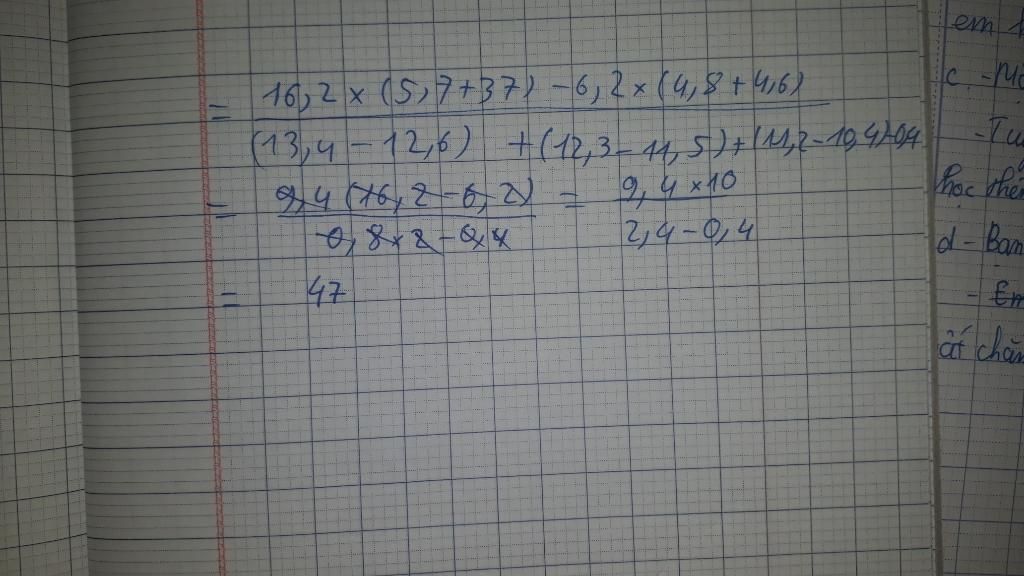 = 16,2 × (5,7+37) - 6,2 × (4,8 + 4,6)
(13,4 - 12,6) + (12,3 - 11,5) + (11,2 - 10,4) - 0,4
= 9,4 (16,2 - 6,2) = 9,4 × 10
0,8 × 2 - 0,4 2,4 - 0,4
= 47
em
c. - Mở
- Tu
học thê
d - Ban
- Em
ất chăn